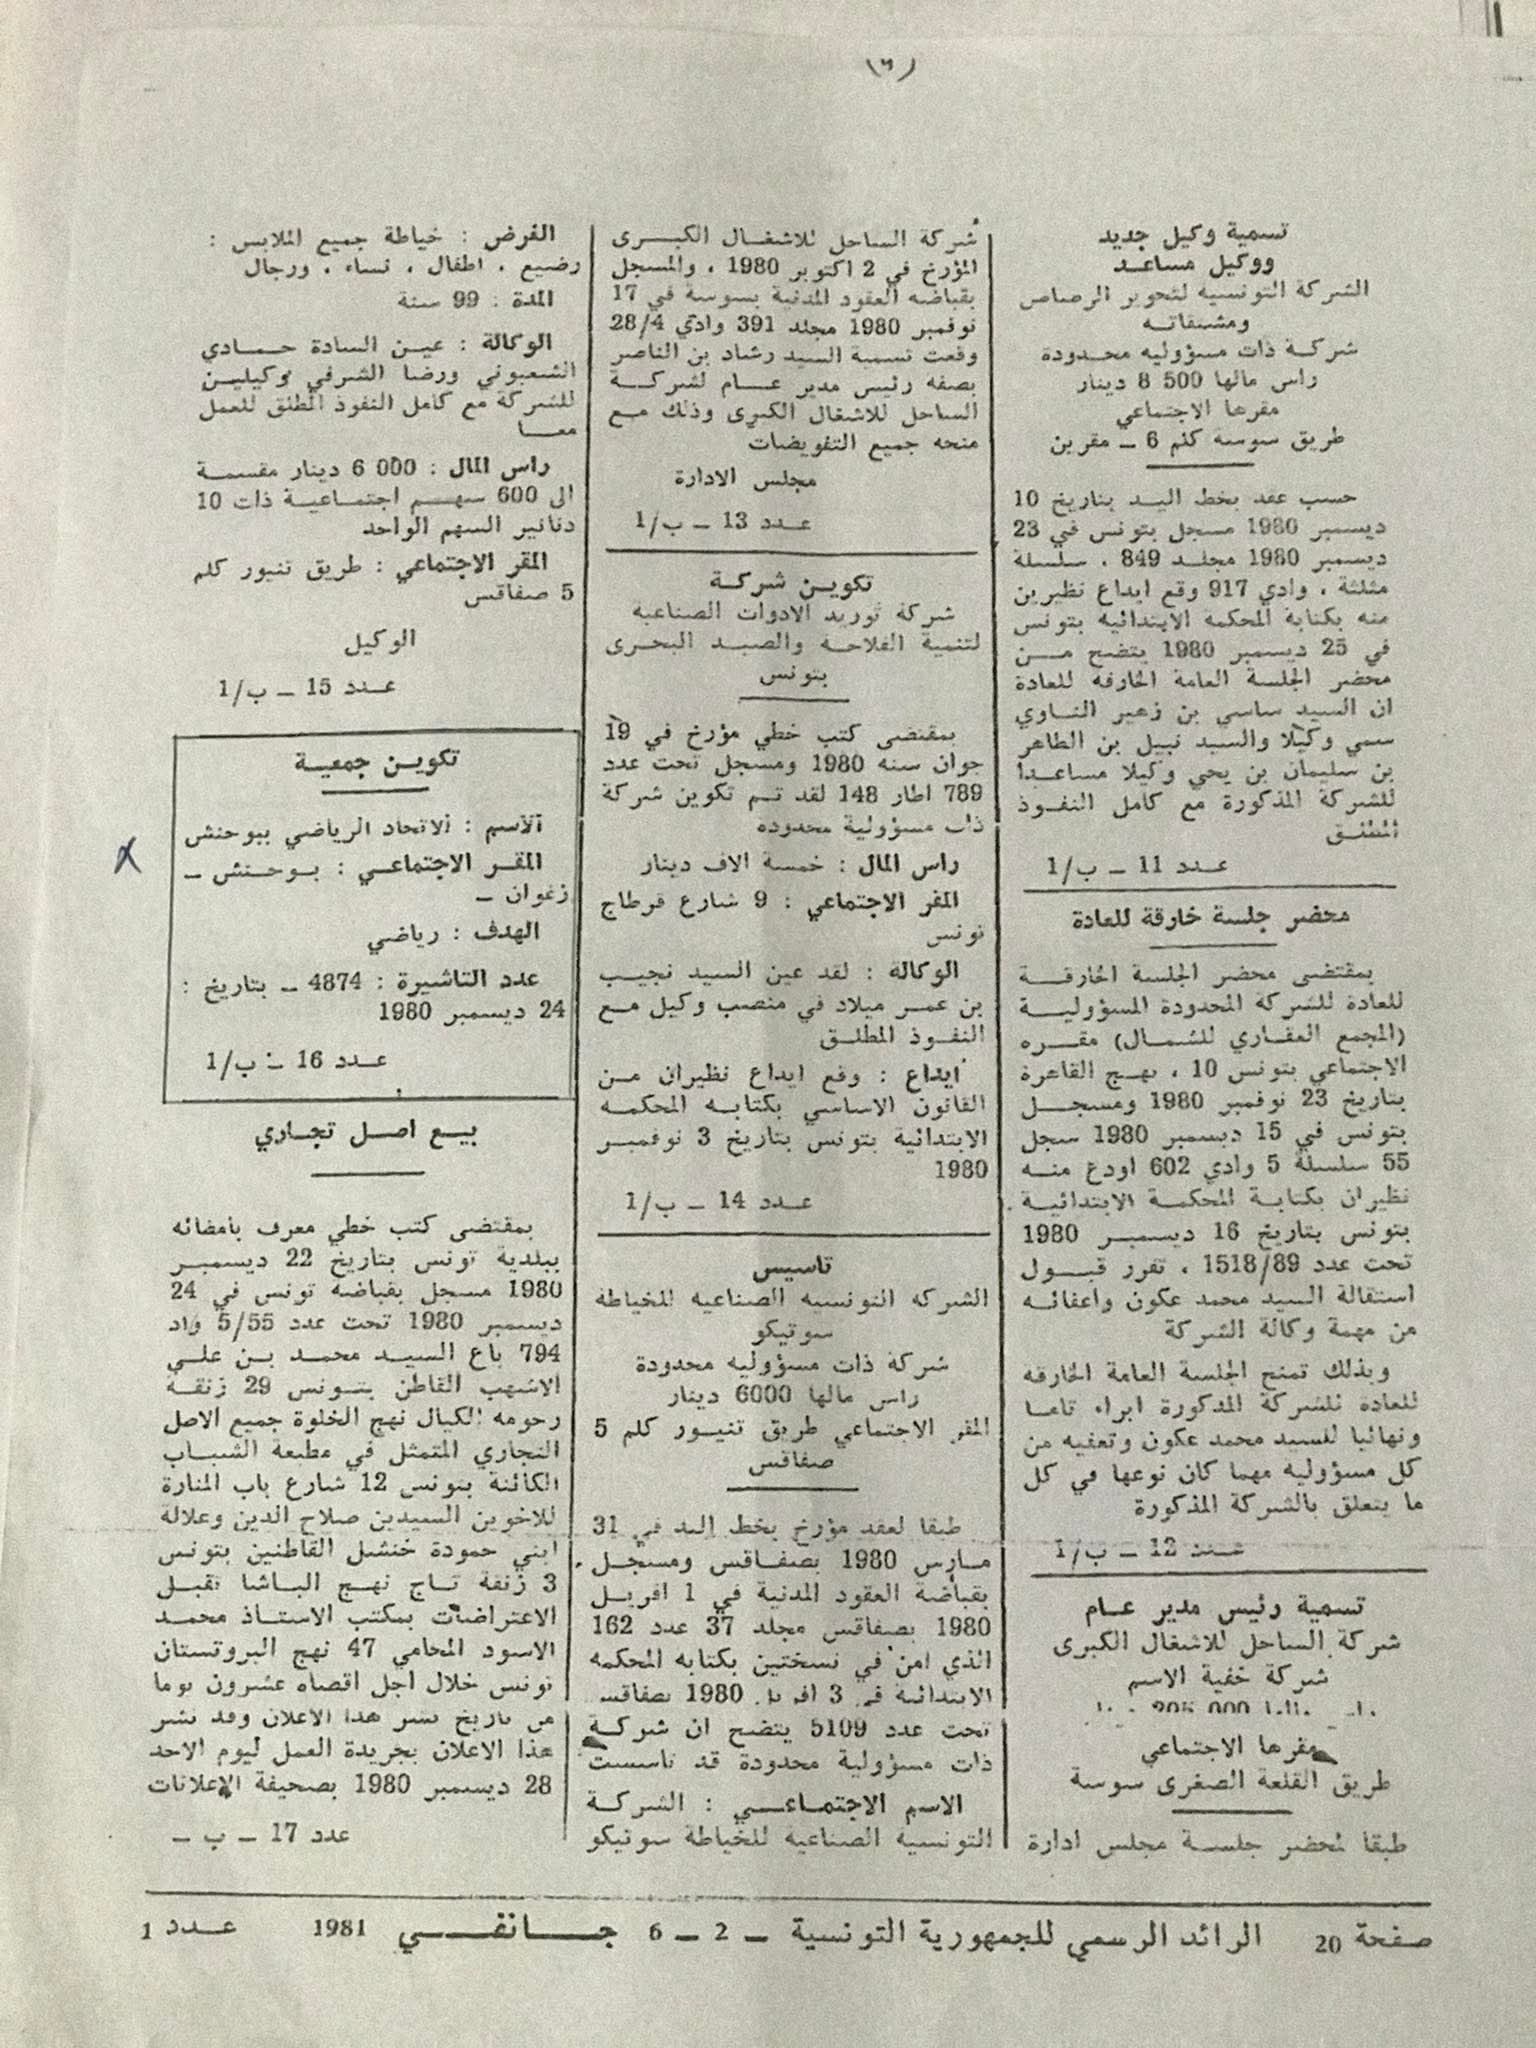 (٦)
تسمية وكيل جديد
ووكيل مساعد
الشركة التونسية لتحوير الرصاص
ومشتقاته
شركة ذات مسؤولية محدودة
راس مالها 500 8 دينار
مقرها الاجتماعي
طريق سوسة كلم 6 ــ مقرين
حسب عقد بخط اليد بتاريخ 10
ديسمبر 1980 مسجل بتونس في 23
ديسمبر 1980 مجلد 849 ، سلسلة
مثلثة ، وادي 917 وقع ايداع نظيرين
منه بكتابة المحكمة الابتدائية بتونس
في 25 ديسمبر 1980 يتضح مـــن
محضر الجلسة العامة الخارقة للعادة
ان السيد ساسي بن زهير النـاوي
سمي وكيلا والسيد نبيل بن الطاهر
بن سليمان بن يحي وكيلا مساعـدا
للشركة المذكورة مع كامل النفـوذ
المطلـق
عــدد 11 ــ ب/1
محضر جلسة خارقة للعادة
بمقتضى محضر الجلسة الخارقـة
للعادة للشركة المحدودة المسؤوليـة
(المجمع العقاري للشمال) مقـره
الاجتماعي بتونس 10 ، نهـج القاهرة
بتاريخ 23 نوفمبر 1980 ومسجـل
بتونس في 15 ديسمبر 1980 سجل
55 سلسلة 5 وادي 602 اودع منـه
نظيران بكتابة المحكمة الابتدائيـة
بتونس بتاريخ 16 ديسمبر 1980
تحت عدد 1518/89 ، تقرر قبـول
استقالة السيد محمد عكون واعفائـه
من مهمة وكالة الشركة
وبذلك تمنح الجلسة العامة الخارقة
للعادة للشركة المذكورة ابراء تامـا
ونهائيا للسيد محمد عكون وتعفيه من
كل مسؤولية مهما كان نوعها في كل
ما يتعلق بالشركة المذكورة
عــدد 12 ــ ب/1
تسمية رئيس مدير عـام
شركة الساحل للاشغال الكبرى
شركة خفية الاسم
مقرها الاجتماعي
طريق القلعة الصغرى سوسة
طبقا لمحضر جلسـة مجلس ادارة
شركة الساحل للاشغـال الكبــرى
المؤرخ في 2 اكتوبر 1980 ، والمسجل
بقباضة العقود المدنية بسوسة في 17
نوفمبر 1980 مجلد 391 وادي 28/4
وقعت تسمية السيد رشاد بن الناصر
بصفة رئيس مدير عـام لشركـة
الساحل للاشغال الكبرى وذلك مـع
منحه جميع التفويضات
مجلس الادارة
عــدد 13 ــ ب/1
تكوين شركـة
شركة توريد الادوات الصناعية
لتنمية الفلاحـة والصيـد البحـرى
بتونس
بمقتضى كتب خطي مؤرخ في 19
جوان سنة 1980 ومسجل تحت عدد
789 اطار 148 لقد تـم تكوين شركة
ذات مسؤولية محدودة
راس المال : خمسة الاف دينار
المقر الاجتماعي : 9 شارع قرطاج
تونس
الوكالة : لقد عين السيد نجيـب
بن عمـر ميلاد في منصب وكيل مع
النفـوذ المطلـق
ايداع : وقع ايداع نظيران مـن
القانون الاساسي بكتابة المحكمة
الابتدائية بتونس بتاريخ 3 نوفمبـر
1980
عــدد 14 ــ ب/1
تاسيس
الشركة التونسية الصناعية للخياطة
سوتيكو
شركة ذات مسؤولية محدودة
راس مالها 6000 دينار
المقر الاجتماعي طريق تنيـور كلم 5
صفاقس
طبقا لعقد مؤرخ بخط اليد في 31
مـارس 1980 بصفـاقس ومسجـل
بقباضة العقود المدنية في 1 افريـل
1980 بصفاقس مجلد 37 عدد 162
الذي امن في نسختين بكتابة المحكمة
الابتدائية في 3 افريل 1980 بصفاقس
تحت عدد 5109 يتضح ان شركـة
ذات مسؤولية محدودة قـد تاسست
الاسم الاجتمـاعــي : الشركـة
التونسية الصناعية للخياطة سوتيكو
الغرض : خياطة جميع الملابس :
رضيع ، اطفال ، نساء ، ورجال
المدة : 99 سنة
الوكالة : عيـن السادة حمـادي
الشعبوني ورضا الشرفي وكيليـن
للشركة مع كامل النفوذ المطلق للعمل
معــا
راس المال : 000 6 دينار مقسمـة
الى 600 سهـم اجتمـاعيـة ذات 10
دنانير السهم الواحد
المقر الاجتماعي : طريق تنيور كلم
5 صفاقس
الوكيل
عــدد 15 ــ ب/1
تكويـن جمعيـة
الاسم : الاتحاد الرياضي ببوحنش
المقـر الاجتمـاعـي : بـوحـنش ــ
زغوان ــ
الهدف : رياضي
عدد التاشيرة : 4874 ــ بتاريخ :
24 ديسمبر 1980
عــدد 16 ــ ب/1
بيـع اصـل تجـاري
بمقتضى كتب خطي معرف بامضائه
ببلدية تونس بتاريخ 22 ديسمبـر
1980 مسجل بقباضة تونس في 24
ديسمبر 1980 تحت عدد 5/55 واد
794 باع السيـد محمـد بـن علـي
الاشهب القاطن بتـونس 29 زنقـة
رحومة الكيال نهج الخلوة جميع الاصل
التجاري المتمثل في مطبعة الشبـاب
الكائنة بتونس 12 شارع باب المنارة
للاخوين السيدين صلاح الدين وعلالة
ابني حمودة خنشل القاطنين بتونس
3 زنقة تـاج نهـج البـاشا تقبـل
الاعتراضات بمكتب الاستاذ محمـد
الاسود المحامي 47 نهج البروتستان
تونس خلال اجل اقصاه عشرون يوما
من تاريخ نشر هذا الاعلان وقد نشر
هذا الاعلان بجريدة العمل ليوم الاحد
28 ديسمبر 1980 بصحيفة الاعلانات
عدد 17 ــ ب ــ
صفحة 20 الرائد الرسمي للجمهورية التونسية ــ 2 ــ 6 جـــانفـــي 1981 عــدد 1